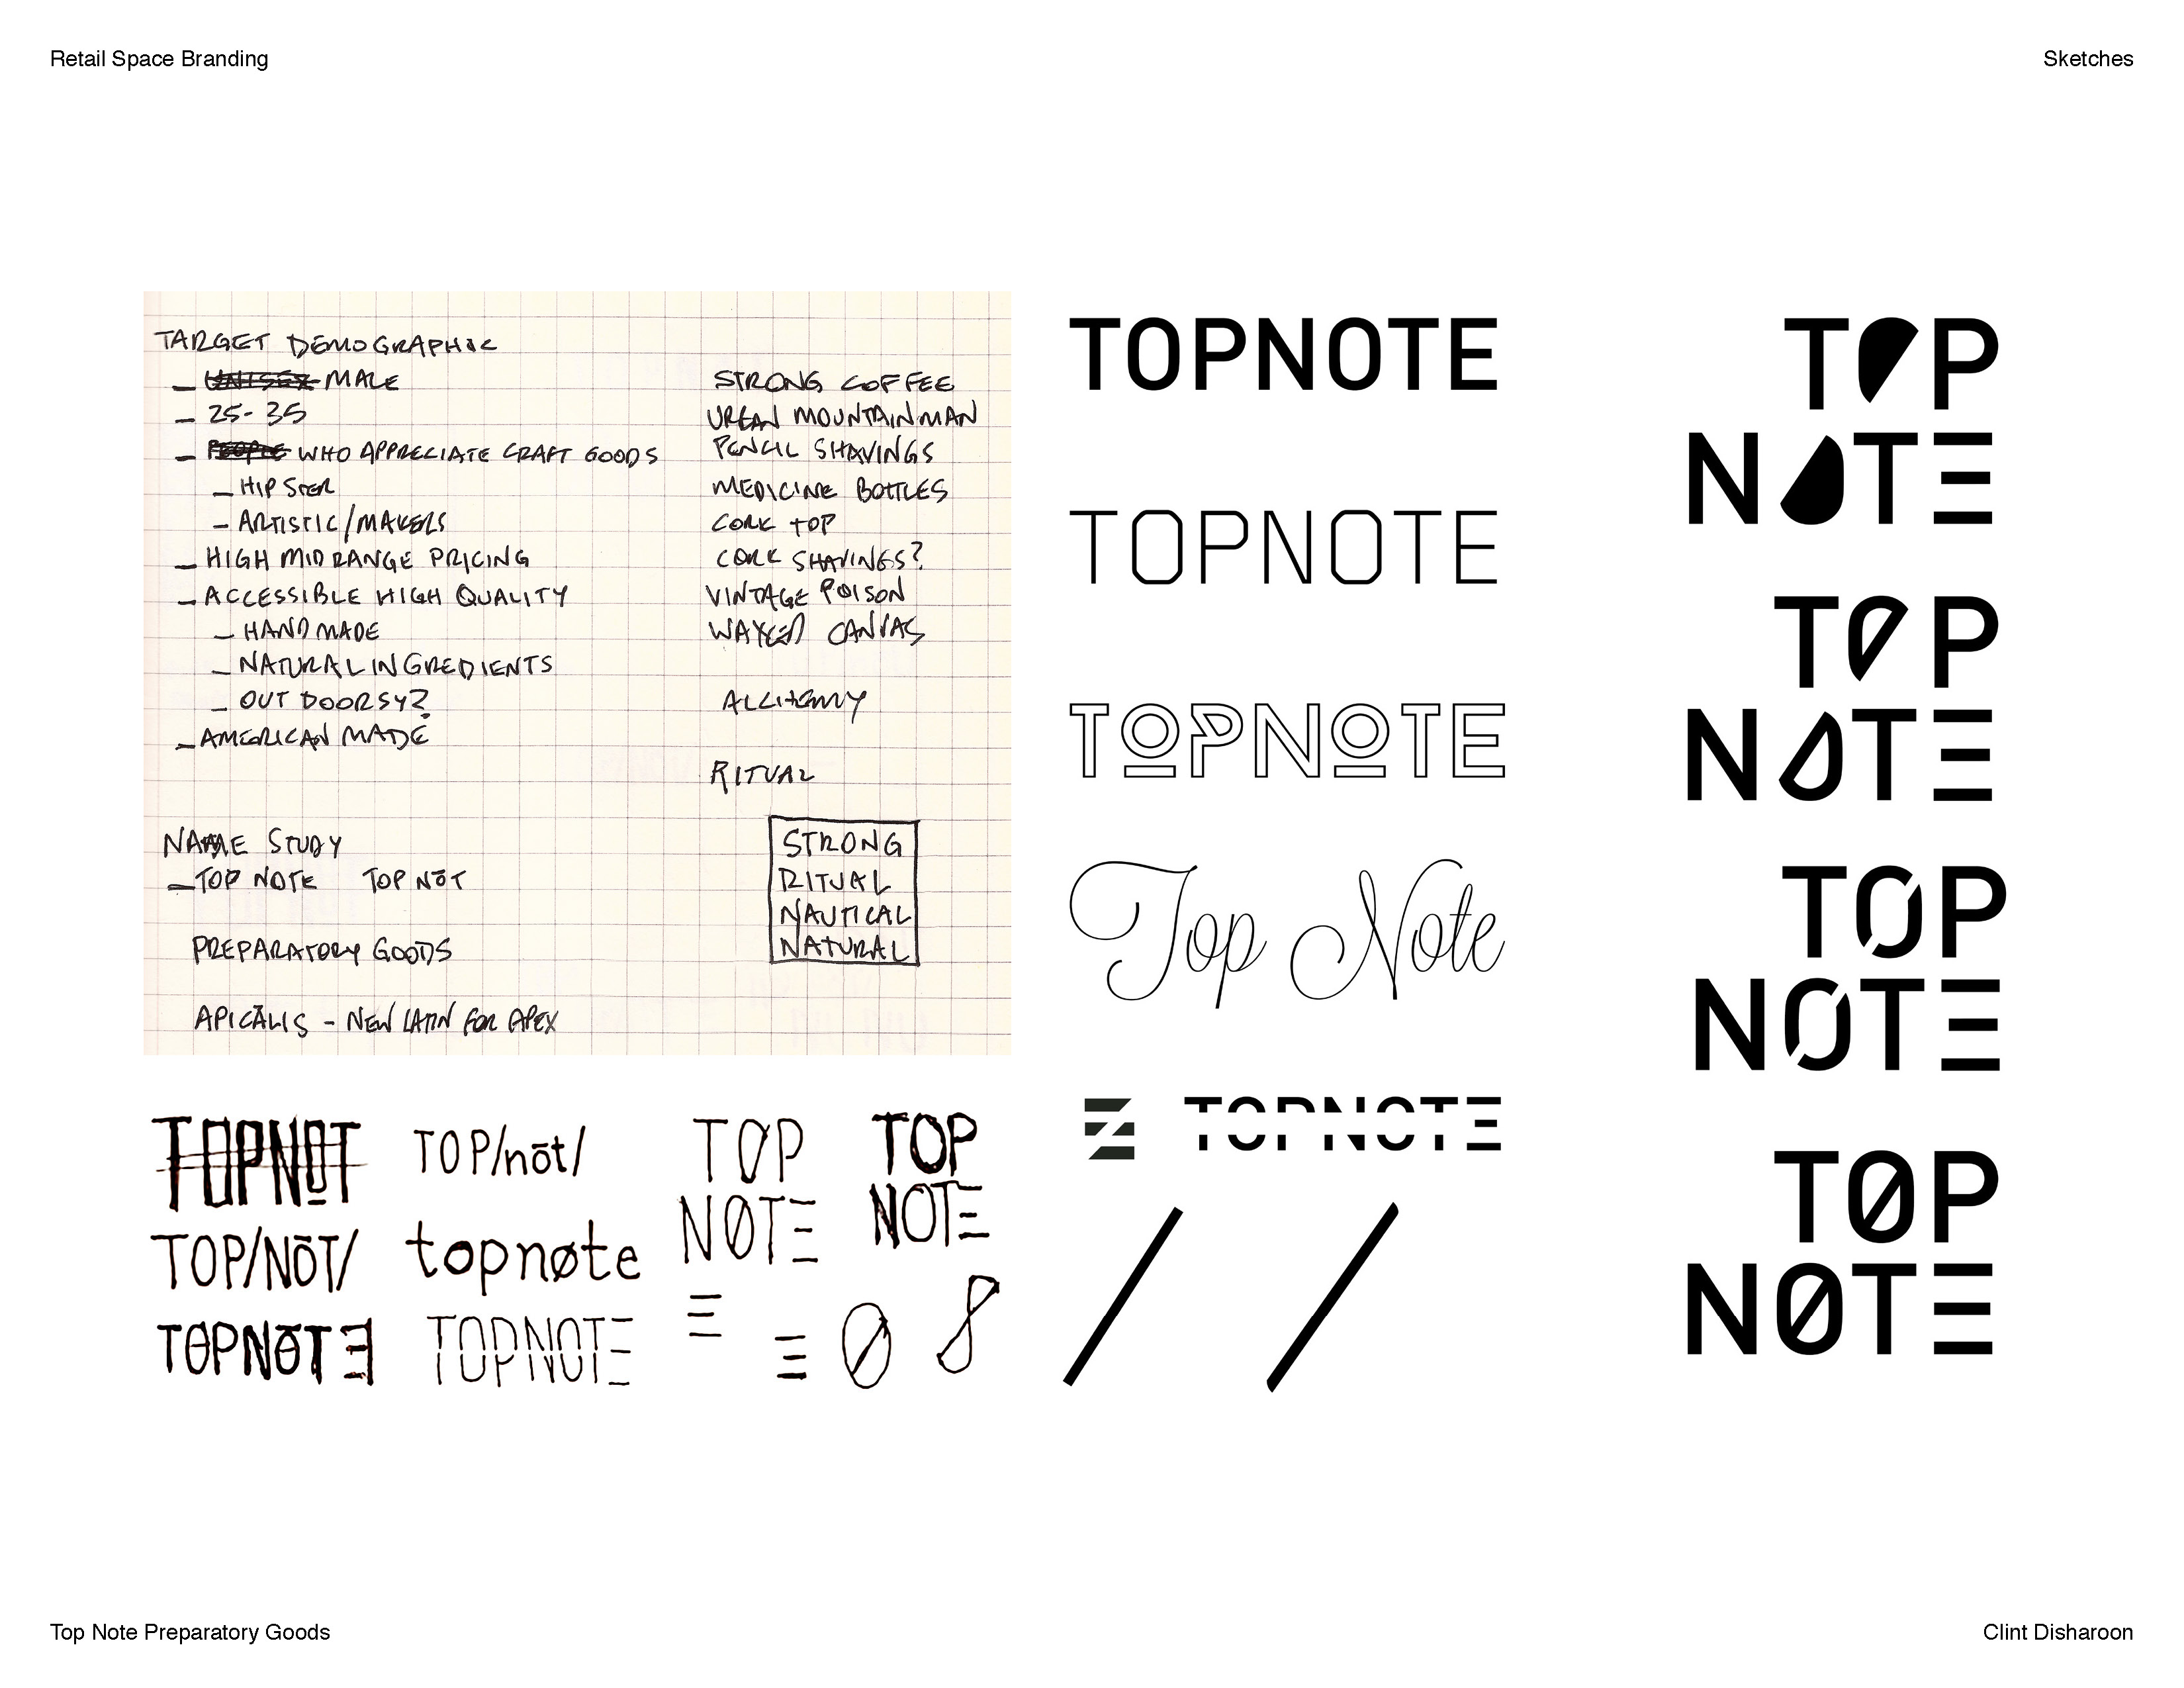 Retail Space Branding
Sketches
TARGET DEMOGRAPHIC
– UNISEX MALE
– 25-35
– PEOPLE WHO APPRECIATE CRAFT GOODS
– HIPSTER
– ARTISTIC/MAKERS
– HIGH MIDRANGE PRICING
– ACCESSIBLE HIGH QUALITY
– HANDMADE
– NATURAL INGREDIENTS
– OUTDOORSY?
– AMERICAN MADE
NAME STUDY
– TOP NOTE TOP NŌT
PREPARATORY GOODS
APICĀLIS – NEW LATIN FOR APEX
STRONG COFFEE
URBAN MOUNTAINMAN
PENCIL SHAVINGS
MEDICINE BOTTLES
CORK TOP
CORK SHAVINGS?
VINTAGE POISON
WAXED CANVAS
ALCHEMY
RITUAL
STRONG
RITUAL
NAUTICAL
NATURAL
TOPNOT
TOP/NŌT/
TOPNŌTE
TOP/nōt/
topnøte
TOPNOTE
TØP
NØTE
TOP
NOTE
Ø
TOPNOTE
TOPNOTE
TOPNOTE
Top Note
TOPNOTE
TOP
NOTE
TOP
NOTE
TØP
NØTE
TØP
NØTE
Top Note Preparatory Goods
Clint Disharoon